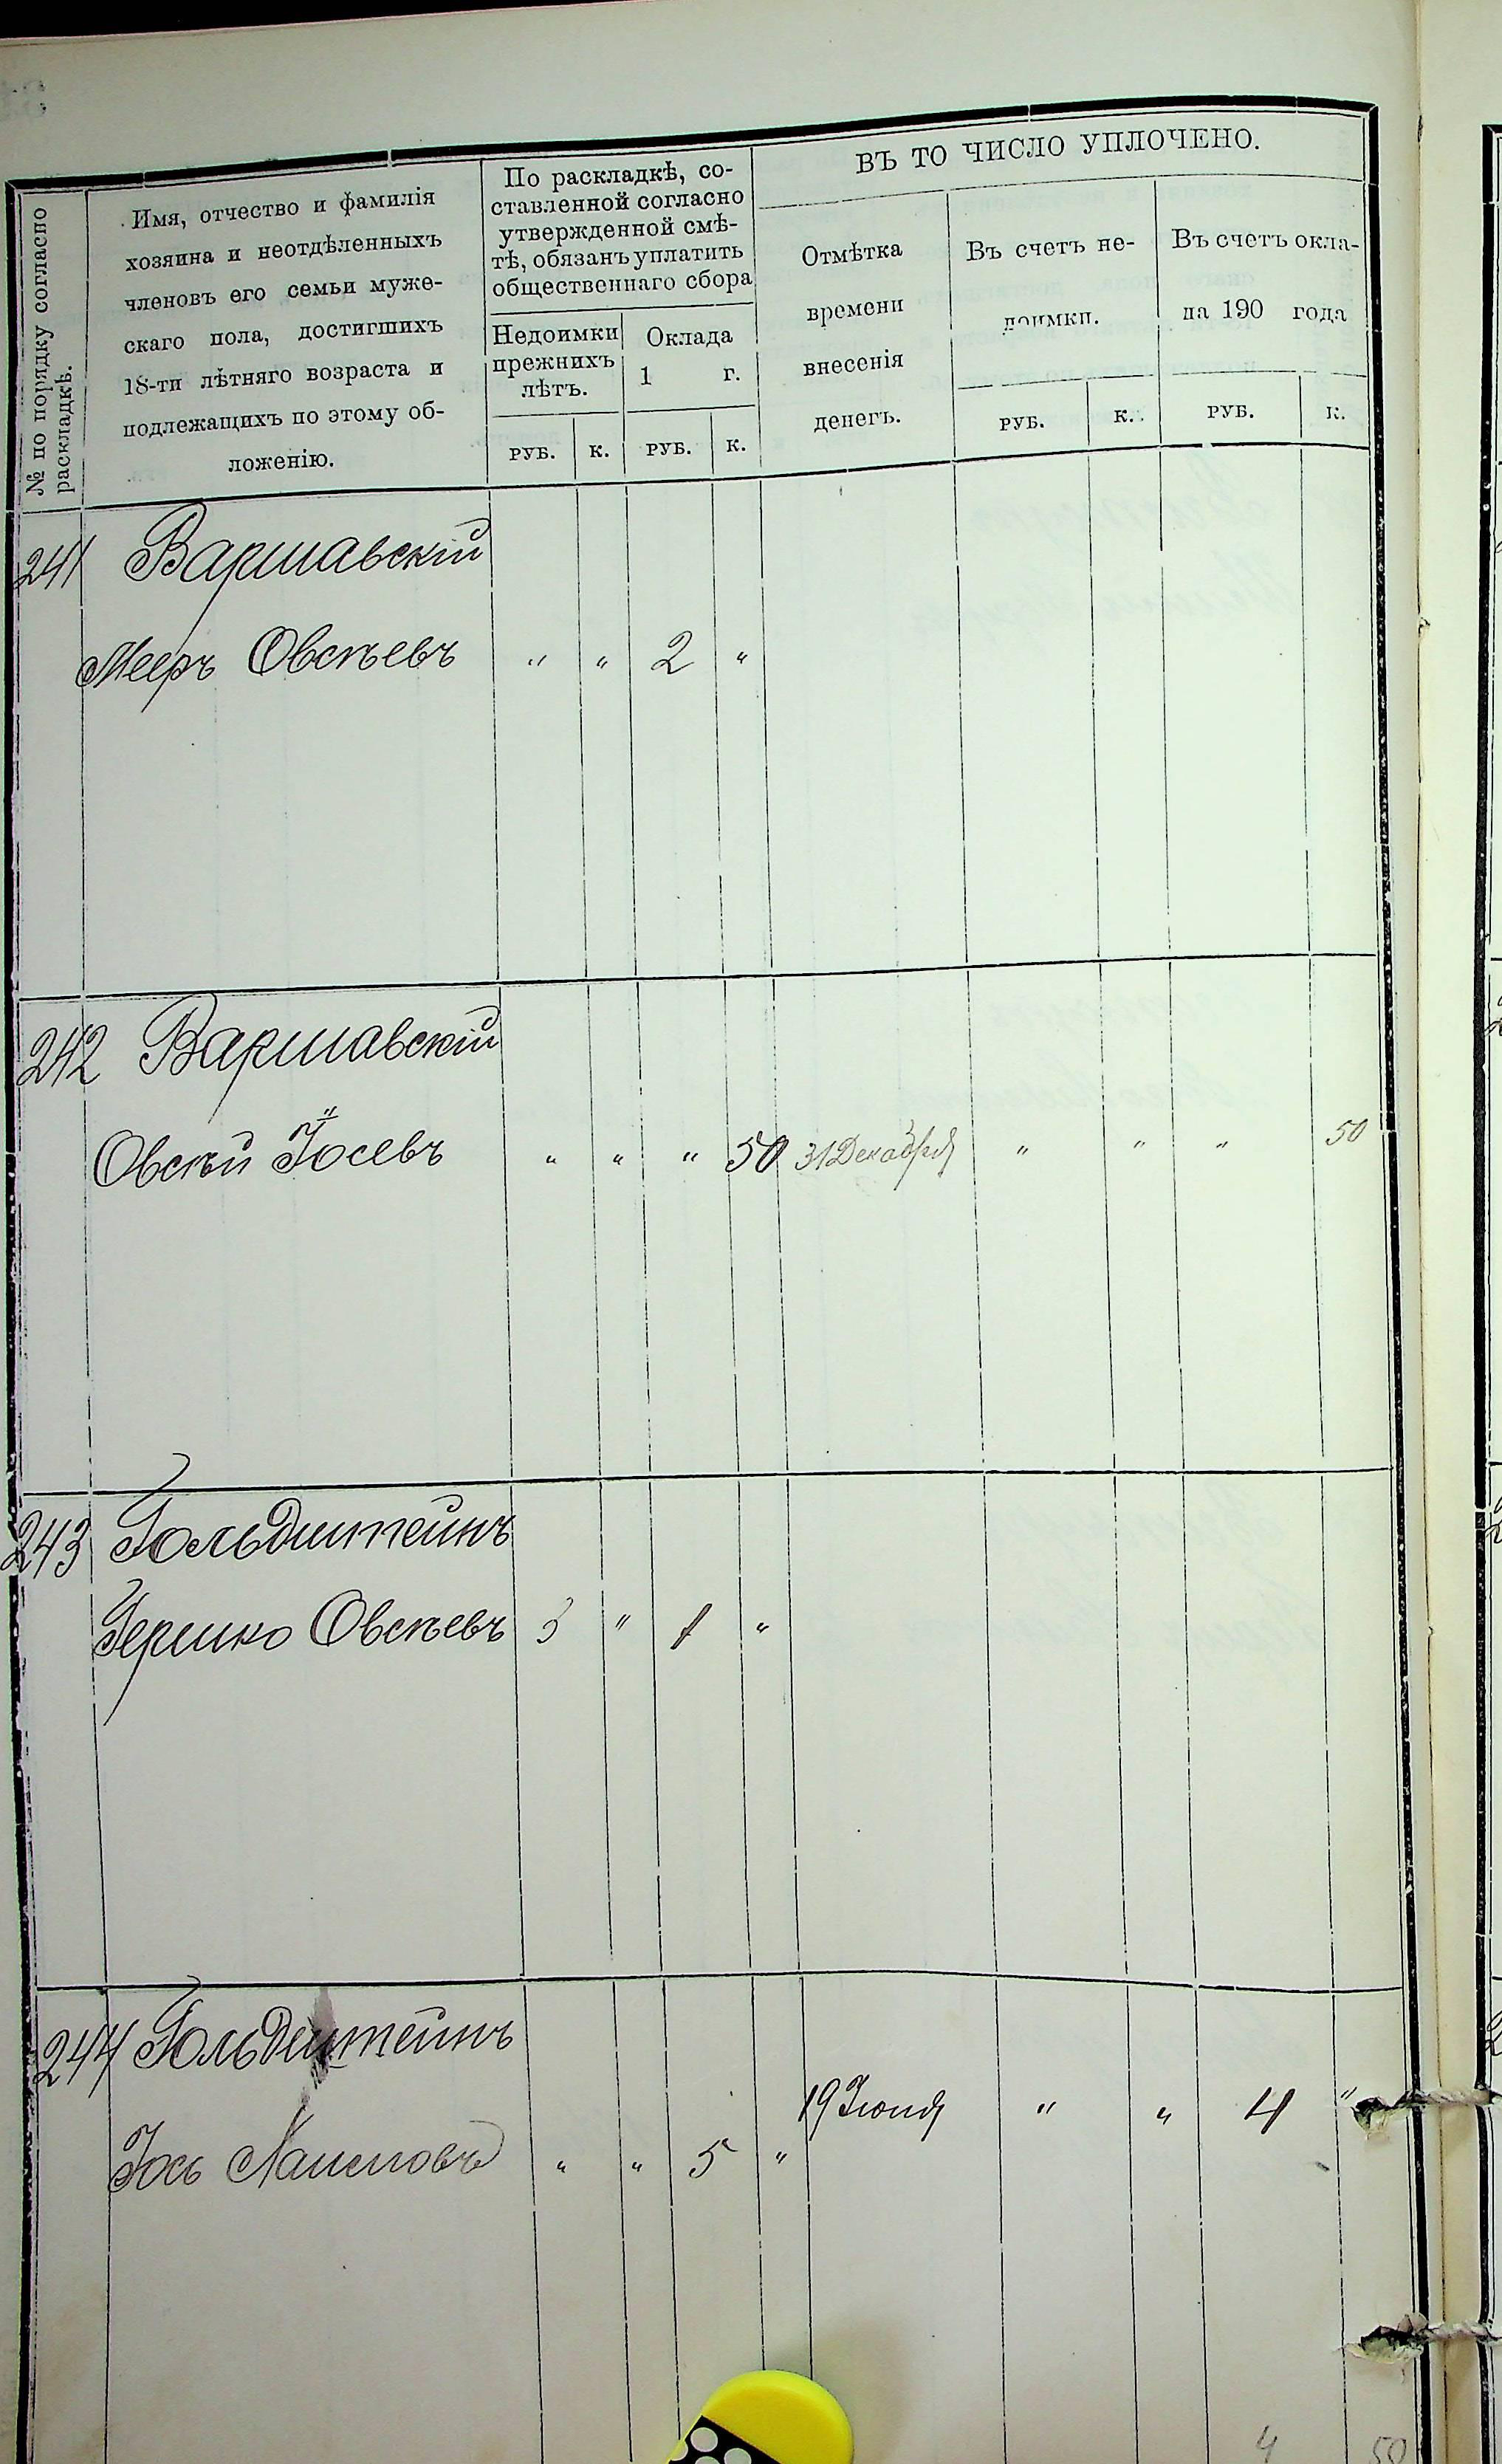 № по порядку согласно
раскладкѣ.
Имя, отчество и фамилія
хозяина и неотдѣленныхъ
членовъ его семьи муже-
скаго пола, достигшихъ
18-ти лѣтняго возраста и
подлежащихъ по этому об-
ложенію.
По раскладкѣ, со-
ставленной согласно
утвержденной смѣ-
тѣ, обязанъ уплатить
общественнаго сбора
Недоимки
прежнихъ
лѣтъ.
РУБ. К.
Оклада
1 г.
РУБ. К.
ВЪ ТО ЧИСЛО УПЛОЧЕНО.
Отмѣтка
времени
внесенія
денегъ.
Въ счетъ не-
доимки.
РУБ. К.
Въ счетъ окла-
да 190 года
РУБ. К.
241 Варшавскій
Мееръ Овсѣевъ " " 2 "
242 Варшавскій
Овсѣй Іосевъ " " " 50 31 Декабря " " " 50
243 Гольдштейнъ
Гершко Овсѣевъ 3 " 1 "
244 Гольдштейнъ
19 Іюня " " 4 "
Іось " " 5 "
4 50